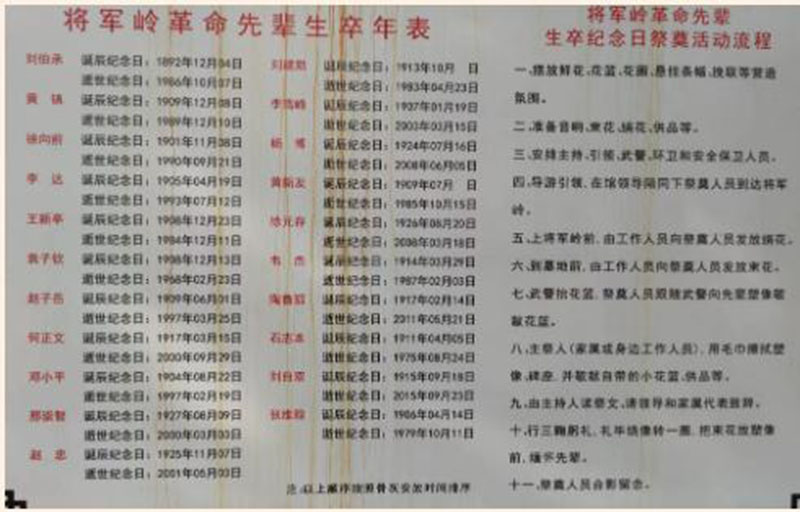 将军岭革命先辈生卒年表
刘伯承 诞辰纪念日：1892年12月04日
逝世纪念日：1986年10月07日
黄 镇 诞辰纪念日：1909年12月08日
逝世纪念日：1989年12月10日
徐向前 诞辰纪念日：1901年11月08日
逝世纪念日：1990年09月21日
李 达 诞辰纪念日：1905年04月19日
逝世纪念日：1993年07月12日
王新亭 诞辰纪念日：1908年12月23日
逝世纪念日：1984年12月11日
袁子钦 诞辰纪念日：1908年12月13日
逝世纪念日：1968年02月23日
赵子岳 诞辰纪念日：1909年06月01日
逝世纪念日：1997年03月25日
何正文 诞辰纪念日：1917年03月15日
逝世纪念日：2000年09月29日
邓小平 诞辰纪念日：1904年08月22日
逝世纪念日：1997年02月19日
邢崇智 诞辰纪念日：1927年08月09日
逝世纪念日：2000年03月03日
赵 忠 诞辰纪念日：1925年11月07日
逝世纪念日：2001年05月03日
诞辰纪念日：1913年10月 日
逝世纪念日：1983年04月23日
李雪峰 诞辰纪念日：1907年01月19日
逝世纪念日：2003年03月15日
杨 诞辰纪念日：1924年07月16日
逝世纪念日：2008年06月05日
黄新友 诞辰纪念日：1909年07月 日
逝世纪念日：1985年10月15日
诞辰纪念日：1926年08月20日
逝世纪念日：2008年03月18日
韦 杰 诞辰纪念日：1914年03月29日
逝世纪念日：1987年02月03日
陶鲁笳 诞辰纪念日：1917年02月14日
逝世纪念日：2011年05月21日
石志本 诞辰纪念日：1911年04月05日
逝世纪念日：1975年08月24日
刘自双 诞辰纪念日：1915年09月18日
逝世纪念日：2015年09月23日
诞辰纪念日：1906年04月14日
逝世纪念日：1979年10月11日
注：以上顺序按照骨灰安放时间排序
将军岭革命先辈
生卒纪念日祭奠活动流程
一、摆放鲜花、花篮、花圈、悬挂条幅、挽联等营造
氛围。
二、准备音响、束花、绢花、供品等。
三、安排主持、引领、武警、环卫和安全保卫人员。
四、导游引领，在馆领导陪同下祭奠人员到达将军
岭。
五、上将军岭前，由工作人员向祭奠人员发放绢花。
六、到墓地前，由工作人员向祭奠人员发放束花。
七、武警抬花篮，祭奠人员跟随武警向先辈塑像敬
献花篮。
八、主祭人（家属或身边工作人员），用毛巾擦拭塑
像、碑座，并敬献自带的小花篮、供品等。
九、由主持人读祭文，请领导和家属代表致辞。
十、行三鞠躬礼，礼毕绕像转一圈，把束花放塑像
前，缅怀先辈。
十一、祭奠人员合影留念。